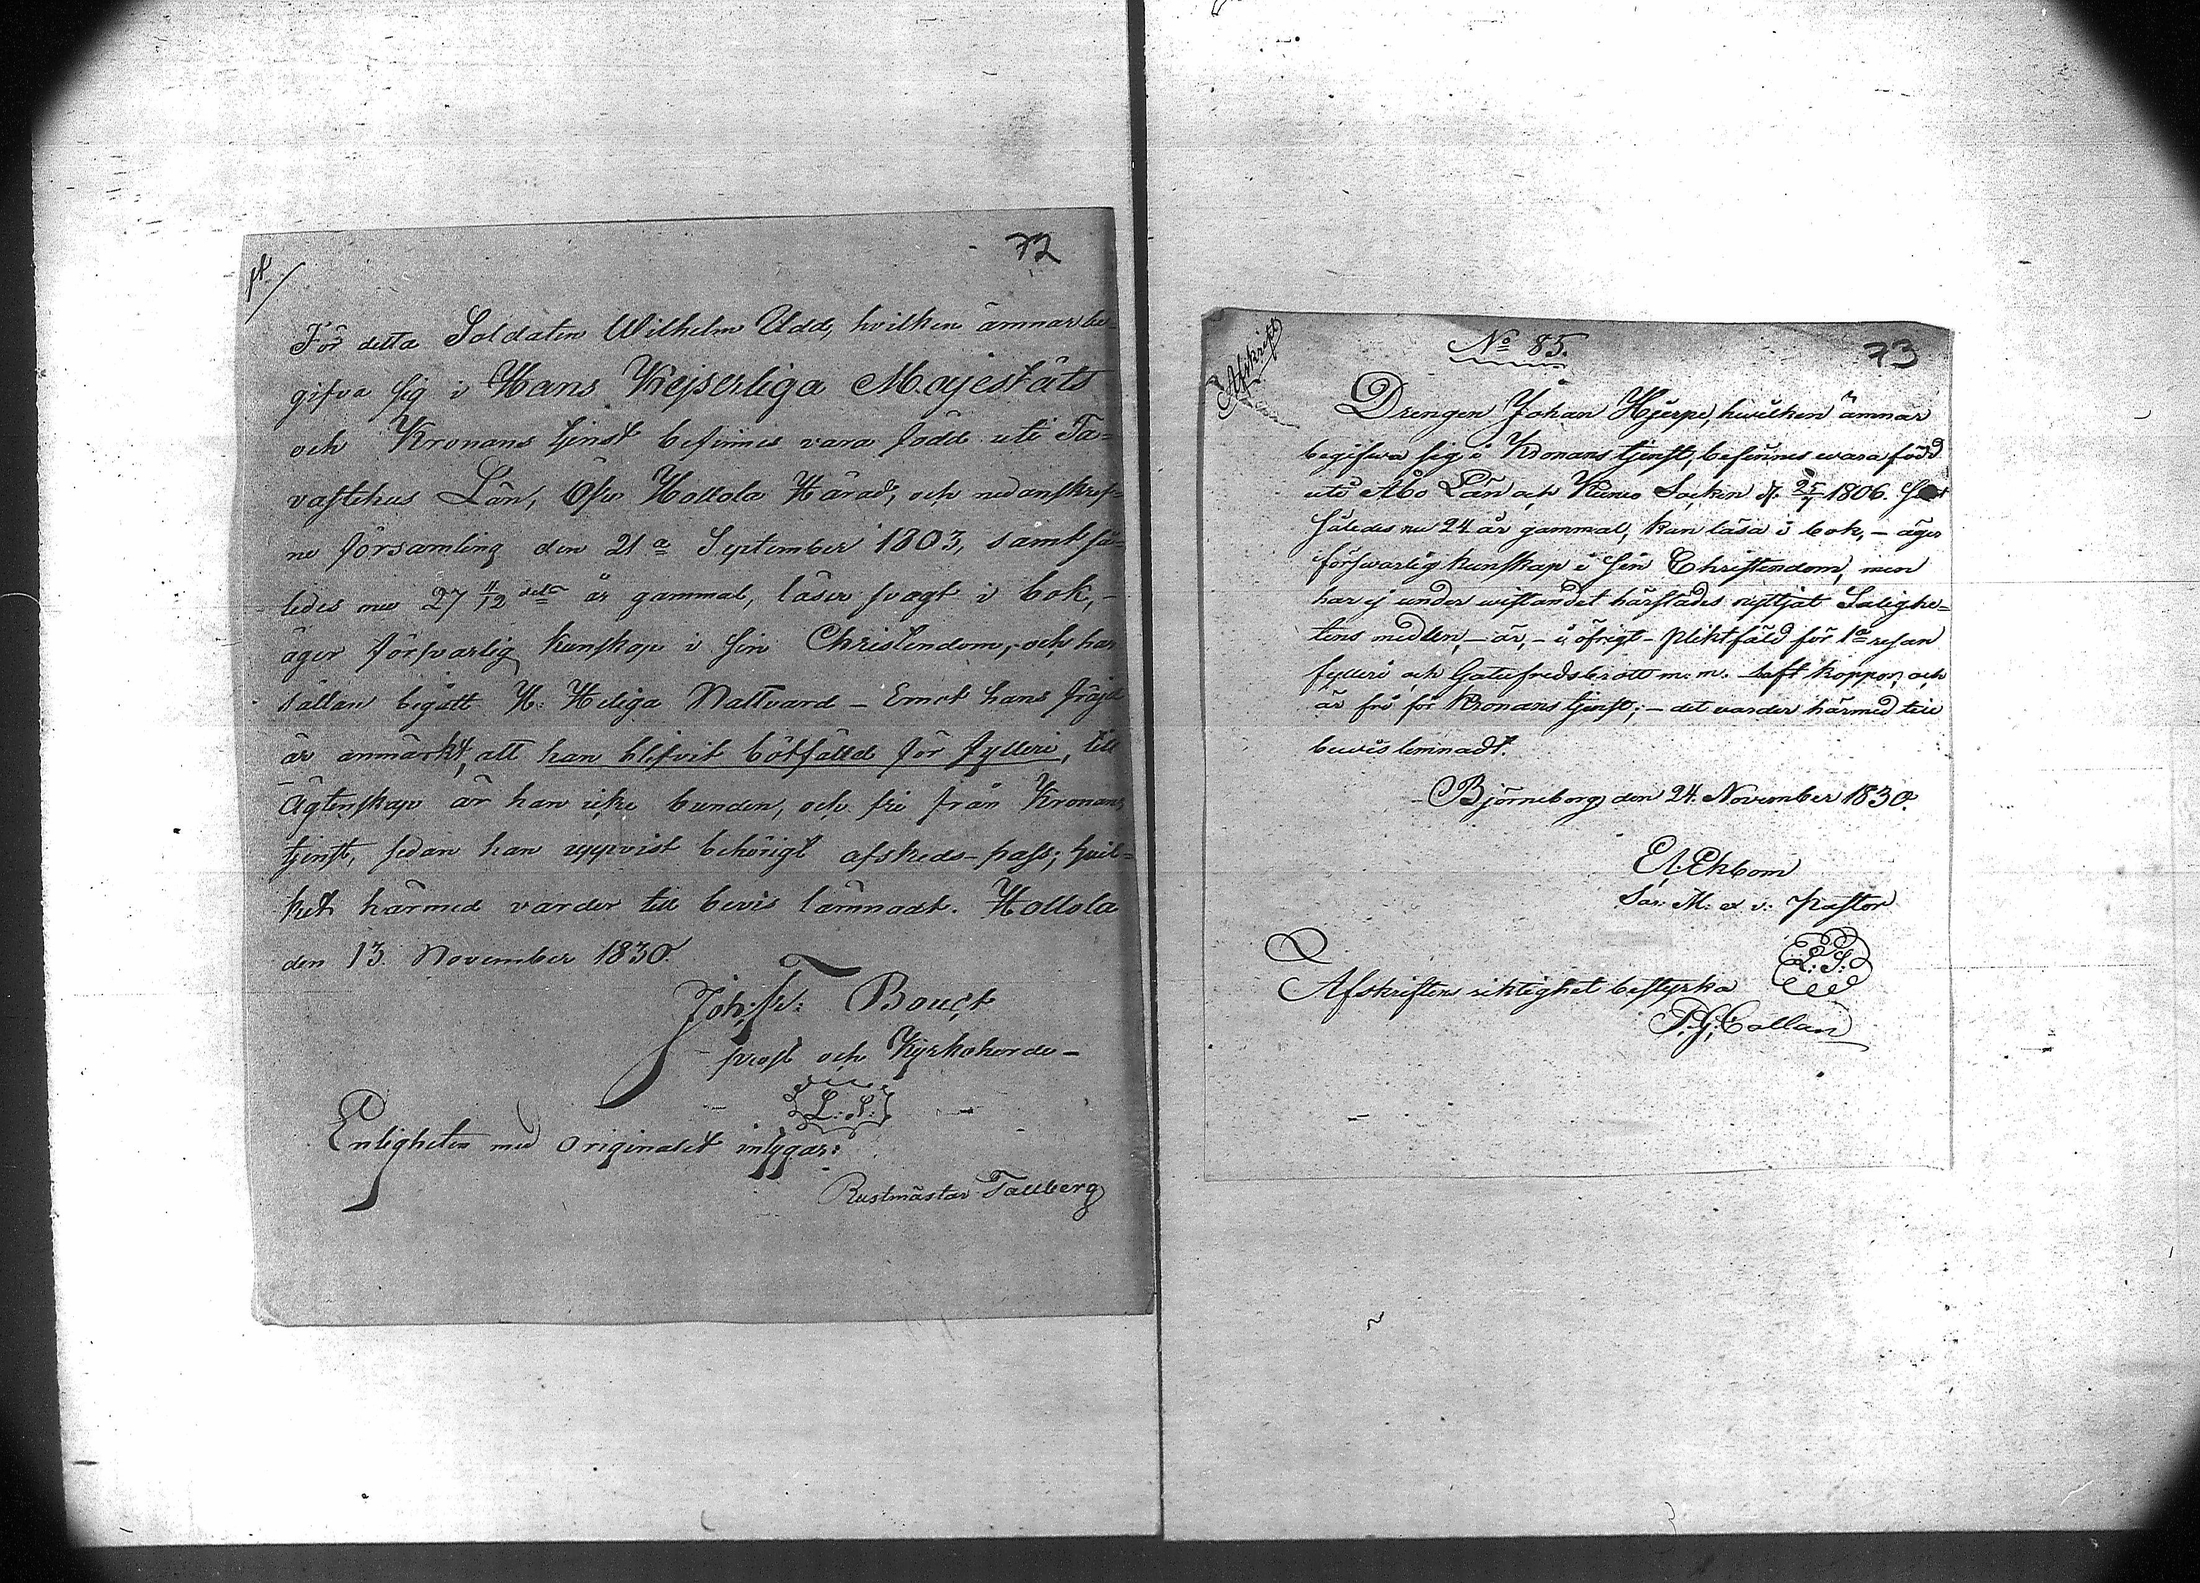 72
För detta Soldaten Wilhelm Udd, hvilken ämnar be-
gifva sig i Hans Kejserliga Majestäts
och Kronans tjenst befinnes vara född uti Ta-
vastehus Län, Öfre Hollola Härad, och nedanskref-
ne församling den 21a September 1803, samt så-
ledes nu 27 11/12 dels år gammal, läser svagt i bok, -
äger försvarlig kunskap i sin Christendom, och har
sällan begått H. Heliga Nattvard - Emot hans fräjd
är anmärkt, att han blifvit bötfälld för fylleri, till
Ägtenskap är han icke bunden, och fri från Kronans
tjenst, sedan han uppvist behörigt afskeds-pass; hvil-
ket härmed varder till bevis lämnadt. Hollola
den 13 November 1830.
Joh: Fr: Boucht
prost och Kyrkoherde -
L: S:
Enligheten med originalet intygar:
Rustmästar Tallberg
Afskrift
No 85.
73
Drengen Johan Hjerpe, hwilken ämnar
begifwa sig i Kronans tjenst, befinnes wara född
uti Åbo Län och Kumo Sockn d. 25/1 1806.
således nu 24 år gammal, kan läsa i bok, - äger
förswarlig kunskap i sin Christendom, men
har ej under wistandet härstädes nyttjat Salighe-
tens medlen, - är, - i öfrigt - pliktfäld för 1a resan
fylleri och Gatufredsbrott m. m. haft koppor, och
är fri för Kronans tjenst; - det varder härmed till
bewis lemnadt.
Björneborg den 24. November 1830.
Ekbom
v: Pastor
L: S:
Afskriftens riktighet bestyrka
P. G. Collan